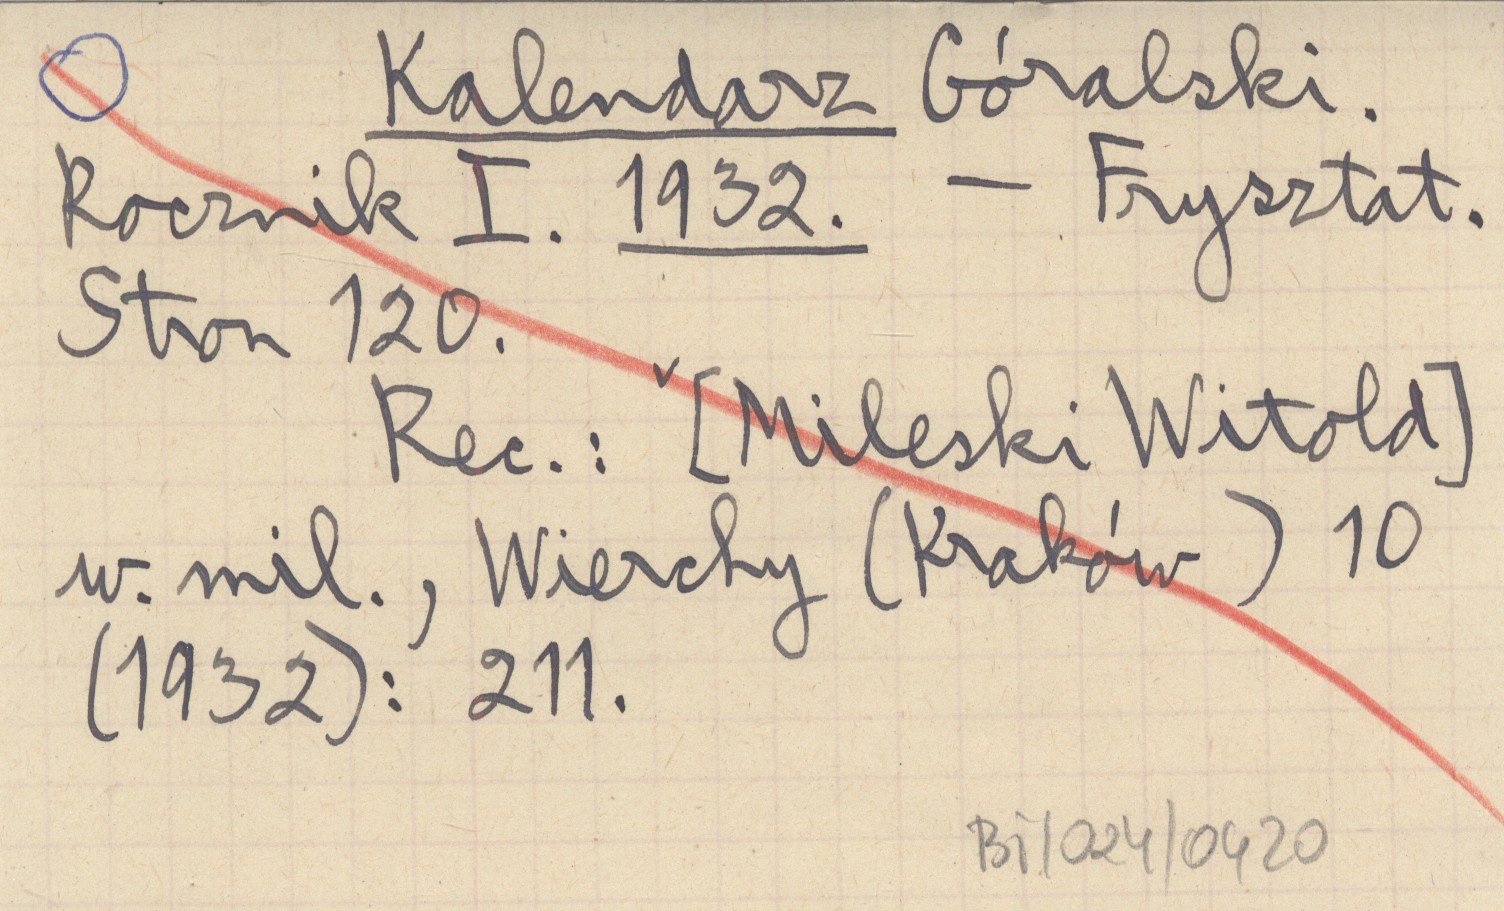 Kalendarz Góralski.
Rocznik I. 1932. — Frysztat.
Stron 120.
Rec.: [Mileski Witold]
w. mil., Wierchy (Kraków) 10
(1932): 211.
Bi/024/0420